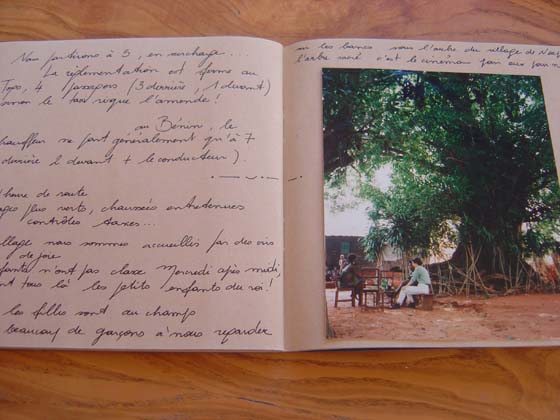 Nous partirons à 5, en surcharge...
La réglementation est ferme au
Togo, 4 passagers (3 derrière, 1 devant)
sinon le taxi risque l'amende!
au Bénin, le
chauffeur ne part généralement qu'à 7
derrière 2 devant + le conducteur).
heure de route
plus verts, chaussées entretenues
contrôles taxes...
village nous sommes accueillis par des cris
de joie
n'ont pas classe Mercredi après midi,
tous là les ptits enfants du roi!
les filles sont au champs
beaucoup de garçons à nous regarder
sur les bancs sous l'arbre du village de
l'arbre sacré c'est le cinéma